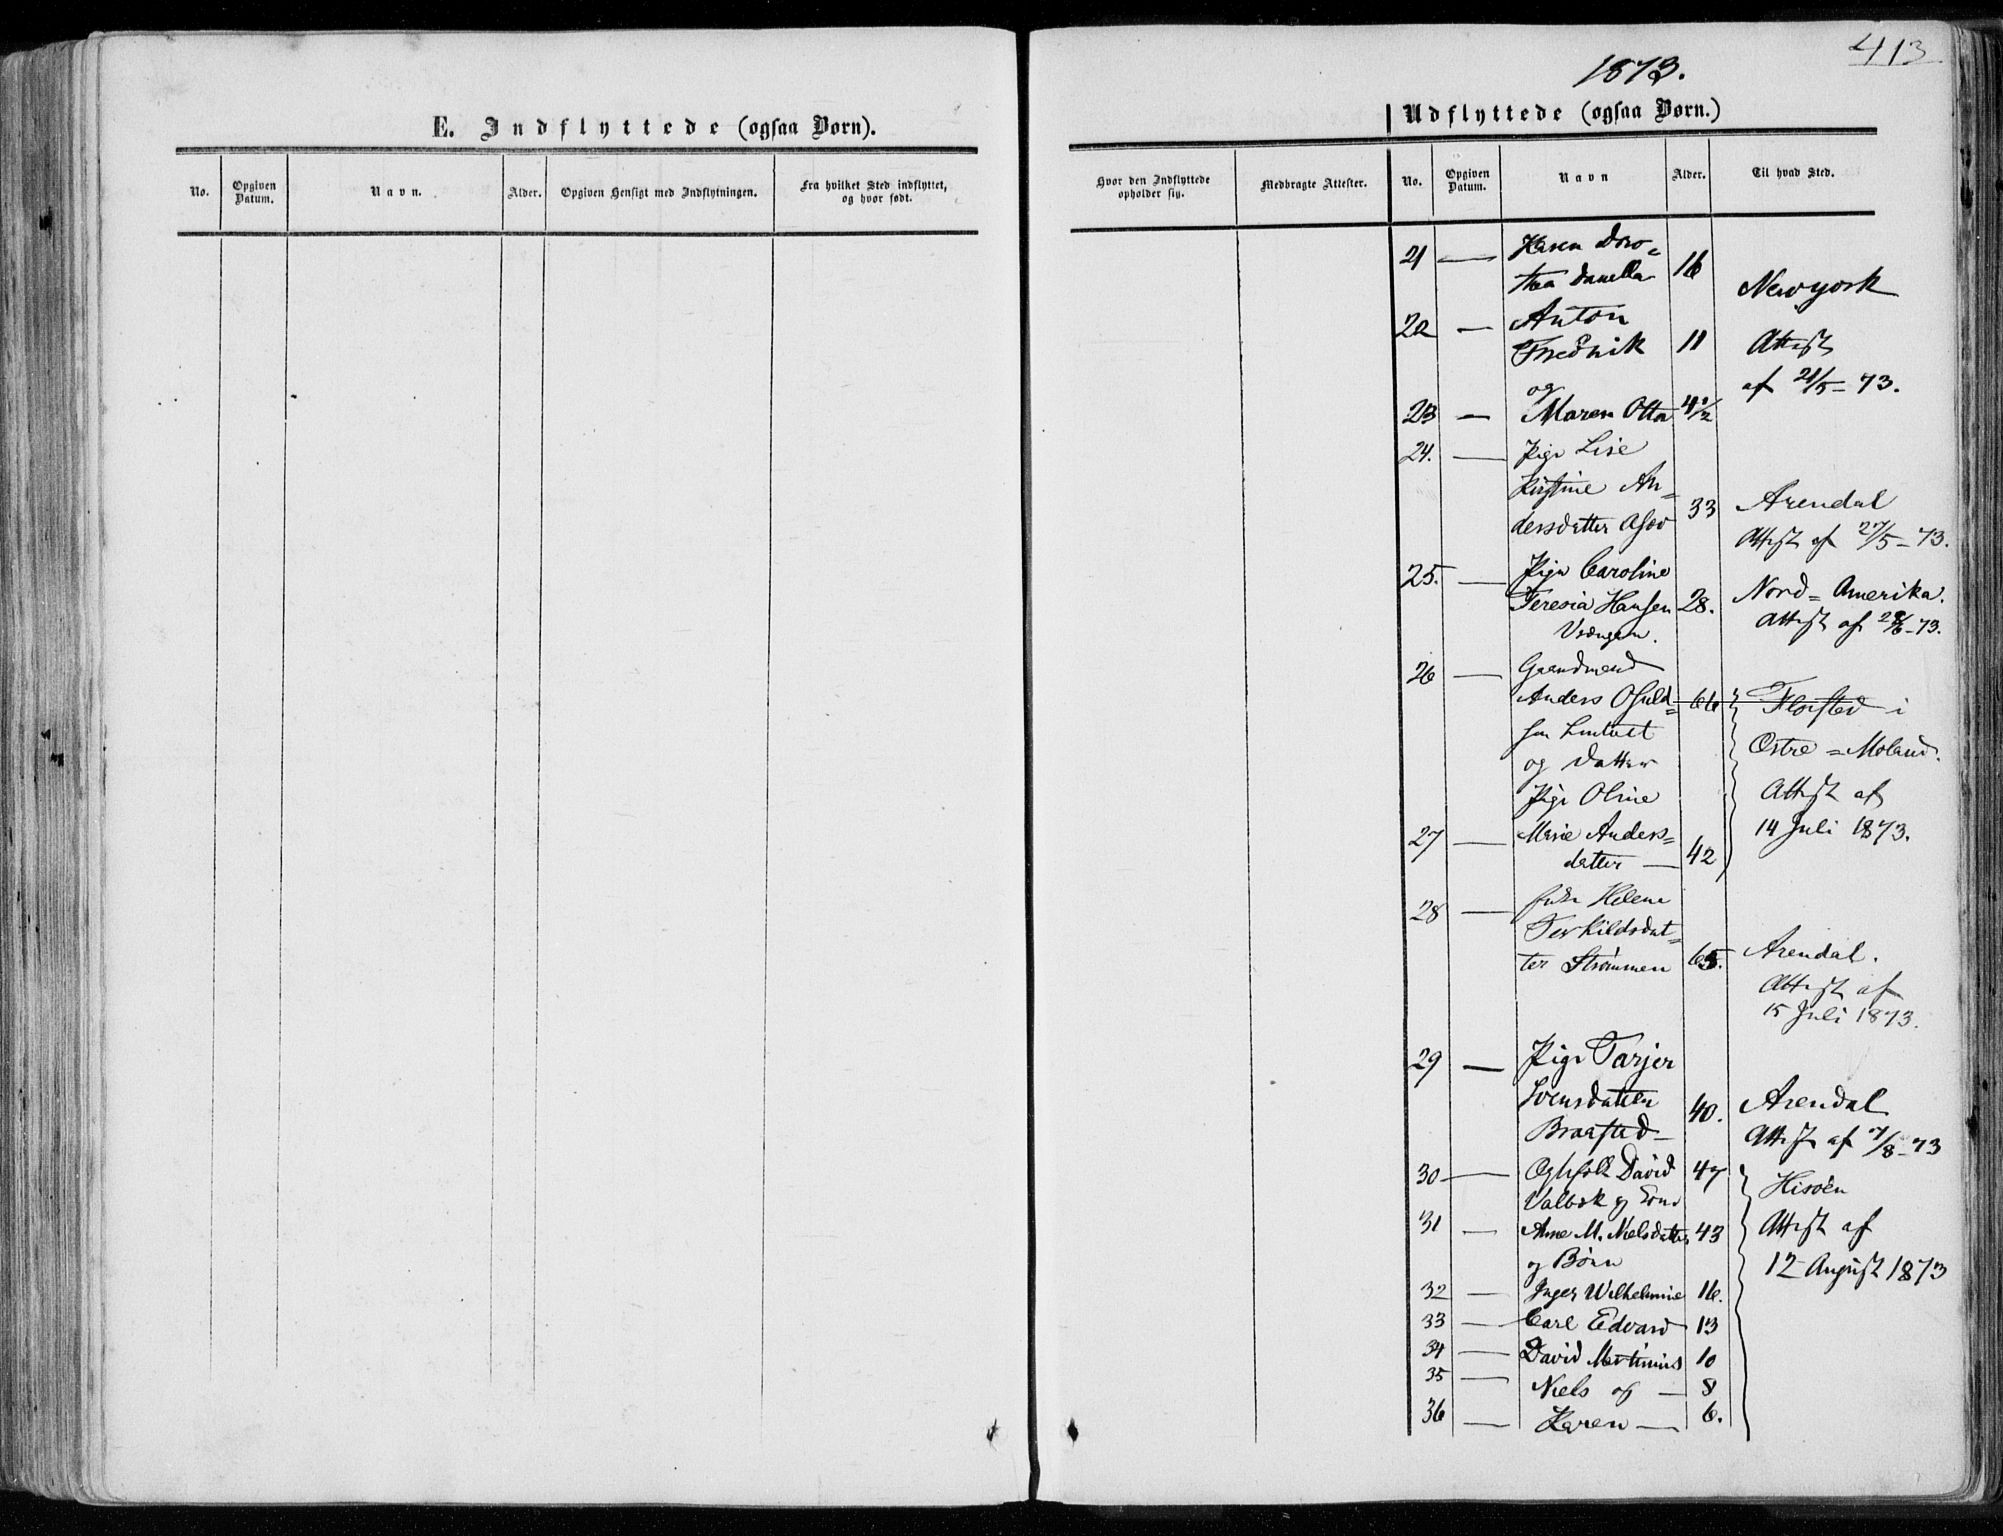 413
1873.
E. Indflyttede (ogsaa Børn).
Udflyttede (ogsaa Børn.)
No. Opgiven Datum. Navn. Alder. Opgiven Hensigt med Indflytningen. Fra hvilket Sted indflyttet, og hvor født.
Hvor den Indflyttede opholder sig. Medbragte Attester. No. Opgiven Datum. Navn Alder. Til hvad Sted.
21 — Karen Doro=
thea Danella 16
Newyork
22 — Anton
Fredrik 11 Attest
og af 21/5 - 73.
23 — Maren Otta 4 1/2
24. — Pige Lise
Kirstine An=
dersdatter 33 Arendal
Attest af 27/5 - 73.
25. — Pige Caroline
Teresia Hansen 28. Nord=Amerika.
Vrængen. Attest af 28/6 - 73.
26 — Gaardmand
Anders Osuld= 66 Flosted i
sen Østre=Moland.
og Datter
Pige Oline Attest af
27 — Marie Anders= 14 Juli 1873.
datter — 42
28 — Helene
Terkildsdat=
ter Strømmen 65. Arendal.
Attest af
15 Juli 1873.
29 — Pige Tarjer
Svensdatter 40. Arendal
Braastad — Attest af 7/8 - 73
30 — David 47 Hisøen
Valbek og Kone
31 — Anne M. Nielsdatter 43 Attest af
og Børn 12 August 1873
32 — Inger Wilhelmine 16.
33 — Carl Edvard 13
34 — David Martinius 10
35 — Niels og — 8
36 — Karen — 6.